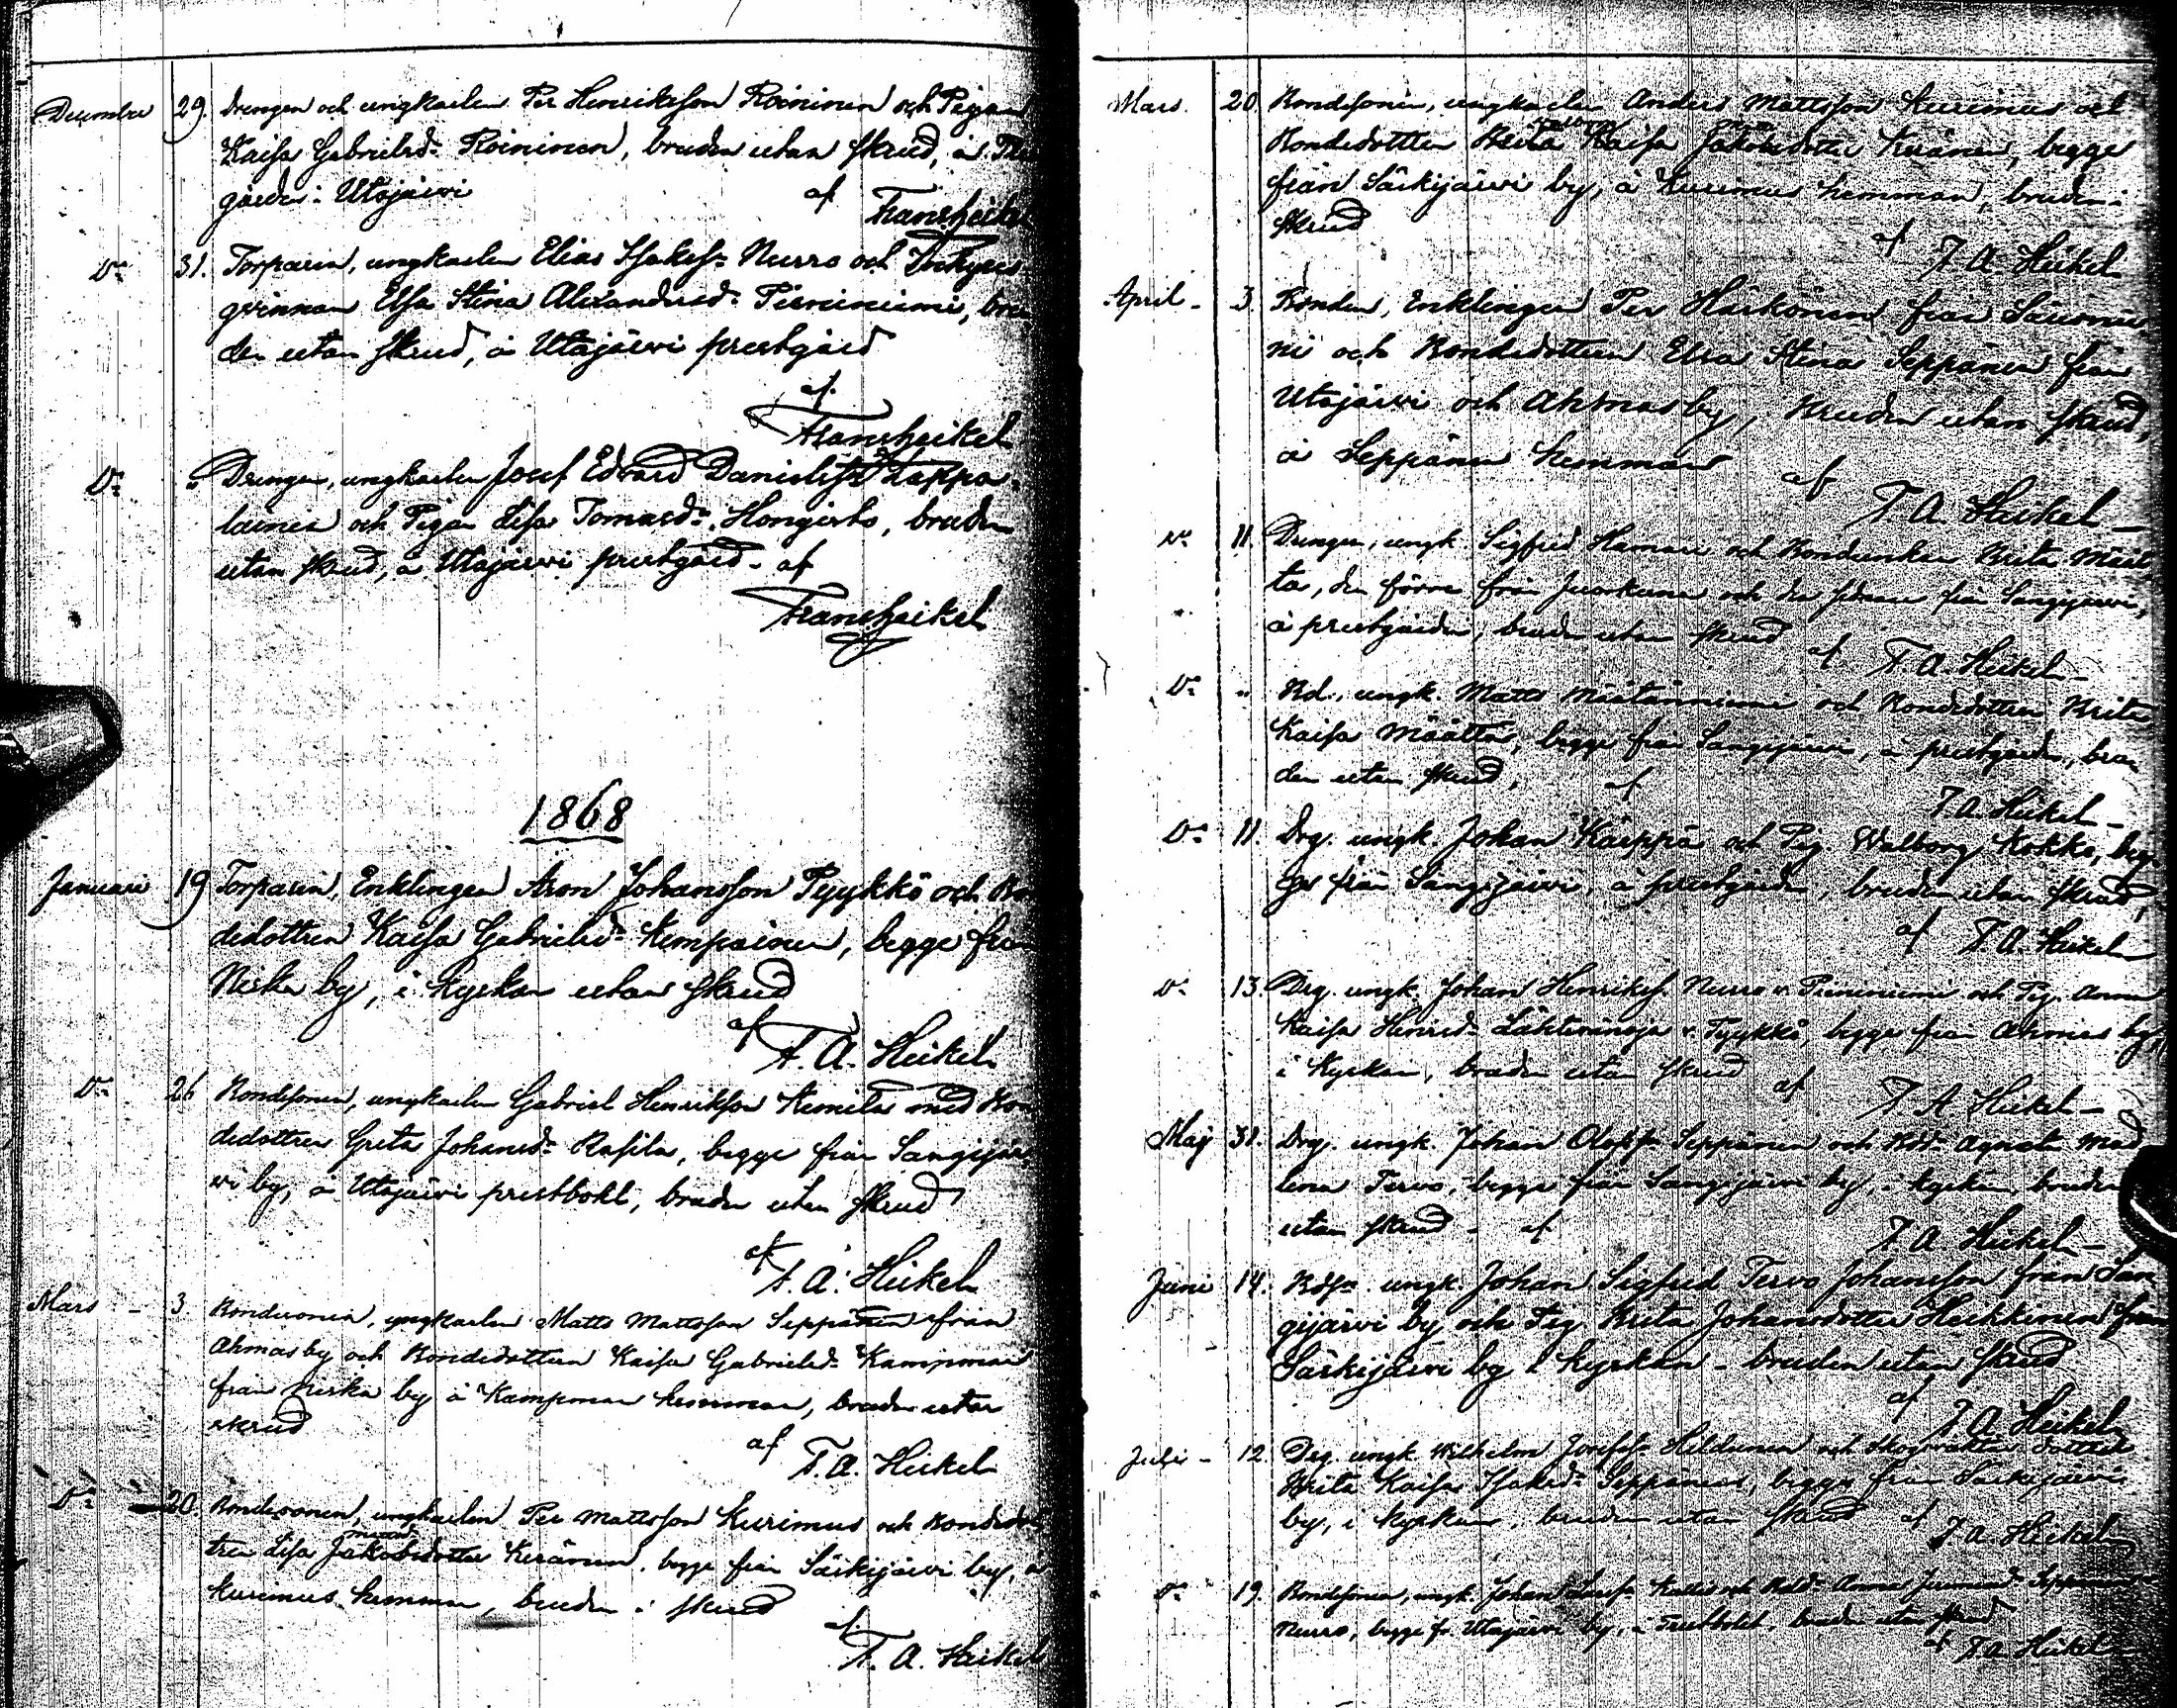 Decembre 29. Drengen och ungkarlen Per Henriksson Roininen och Pigan
Kaisa Gabrielsd:r Roininen, bruden utan skrud, å
gården i Utajärvi af Frans Heikel
D:o 31. Torparen, ungkarlen Elias Isaksss:n Nurro och
qvinnan Elsa Stina Alexandersd:r Pieniniemi, bru
den utan skrud, å Utajärvi prestgård
af
Frans Heikel
D:o " Drengen, ungkarlen Josef Edvard Danielss:n Lappa-
lainen och Pigan Lisa Tomasd:r Hongisto, bruden
utan skrud, å Utajärvi prestgård - af
Frans Heikel
1868
Januari 19 Torparen, Enklingen Aron Johansson Pyykkö och Bon
dedottren Kaisa Gabrielsd:r Kempainen, begge från
Niska by, i Kyrkan utan skrud
af F. A. Heikel
D:o 26 Bondesonen, ungkarlen Gabriel Henriksson Kemila med Bon
dedottren Greta Johansd:r Rasila, begge från Sangijär
vi by, å Utajärvi prestbohl, bruden utan skrud
af F. A. Heikel
Mars - 3. Bondesonen, ungkarlen Matts Mattsson Seppänen från
Ahmas by och Bondedottren Kaisa Gabrielsd:r Kampman
från Niska by å Kampman hemman, bruden utan
skrud af F. A. Heikel
D:o - 20. Bondesonen, ungkarlen Per Mattsson Kurimus och Bondedot
tren Lisa Jakobsdotter Keränen, begge från Särkijärvi by, å
Kurimus hemman, bruden i skrud
af F. A. Heikel
Mars. 20. Bondesonen, ungkarlen Anders Mattsson Kurimus och
Bondedottren Brita Kaisa Jakobsdotter Keränen, begge
från Särkijärvi by, å Kurimus hemman, bruden i
skrud af F. A. Heikel
April - 3. Bonden, Enklingen Per Härkönen från
ni och Bondedottren Elsa Stina Seppänen från
Utajärvi och Ahmas by, bruden utan skrud,
å Seppänen hemman af F. A. Heikel -
D:o 11. Drengen, ungk. Sigfred Hamari och Bondeenkan Brita Määt
ta, den förre från Juorkuna och den sednare från Sangijärvi,
å prestgården, bruden utan skrud af F. A. Heikel -
D:o " Bd., ungk. Matts Määtänniemi och Bondedottren Brita
Kaisa Määtta, begge från Sangijärvi, å prestgården, bru
den utan skrud, af F. A. Heikel -
D:o 11. Drg. ungk. Johan Kärppä och Pig. Walborg Kokko, beg
ge från Sangijärvi, å prestgården, bruden utan skrud,
af F. A. Heikel
D:o 13. Drg. ungk. Johan Henrikss. Nurro v. Pieniniemi och Pig. Anna
Kaisa Henrsd:r Lähtevänoja v. Pyykkö, begge från Ahmas by,
i Kyrkan, bruden utan skrud af F. A. Heikel -
Maj 31. Drg. ungk. Johan Olofss:n Seppänen och Bdd:r Agnata Mad
lena Tervo, begge från Sangijärvi by, i kyrkan, bruden
utan skrud - af F. A. Heikel -
Juni 14. Bdss:n ungk. Johan Sigfred Tervo Johansson från San
gijärvi by och Pig. Brita Johansdotter Heikkinen från
Särkijärvi by i Kyrkan - bruden utan skrud
af F. A. Heikel
Juli - 12. Drg. ungk. Wilhelm Josefss:n Hildunen och Skogvaktare dottren
Brita Kaisa Isaksd:r Seppänen, begge från Särkijärvi
by, i kyrkan, bruden utan skrud af F. A. Heikel
D:o 19. Bondesonen, ungk. Johan och Bdd:r Anna Seppänen
Nurro, begge fr. Utajärvi by, å Prestbolet, bruden utan skrud
af F. A. Heikel